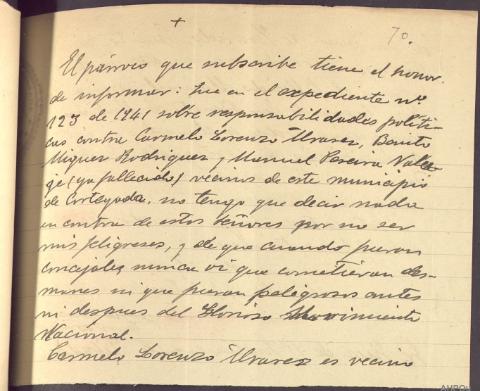 +
70.
El párroco que subscribe tiene el honor
de informar: Que en el expediente nº
123 de 1941 sobre responsabilidades políti-
cas contra Carmelo Lorenzo Álvarez, Benito
Miguez Rodríguez y Manuel Pereira
(ya fallecido) vecinos de este municipio
de Cortegada. no tengo que decir nada
en contra de estos señores por no ser
mis feligreses, y de que cuando fueron
concejales nunca vi que cometieran des-
manes ni que fueran peligrosos antes
ni despues del Glorioso Movimiento
Nacional.
Carmelo Lorenzo Álvarez es vecino